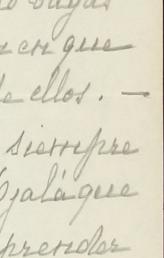 vayas
en que
de ellos. —
siempre
Ojalá que
prender